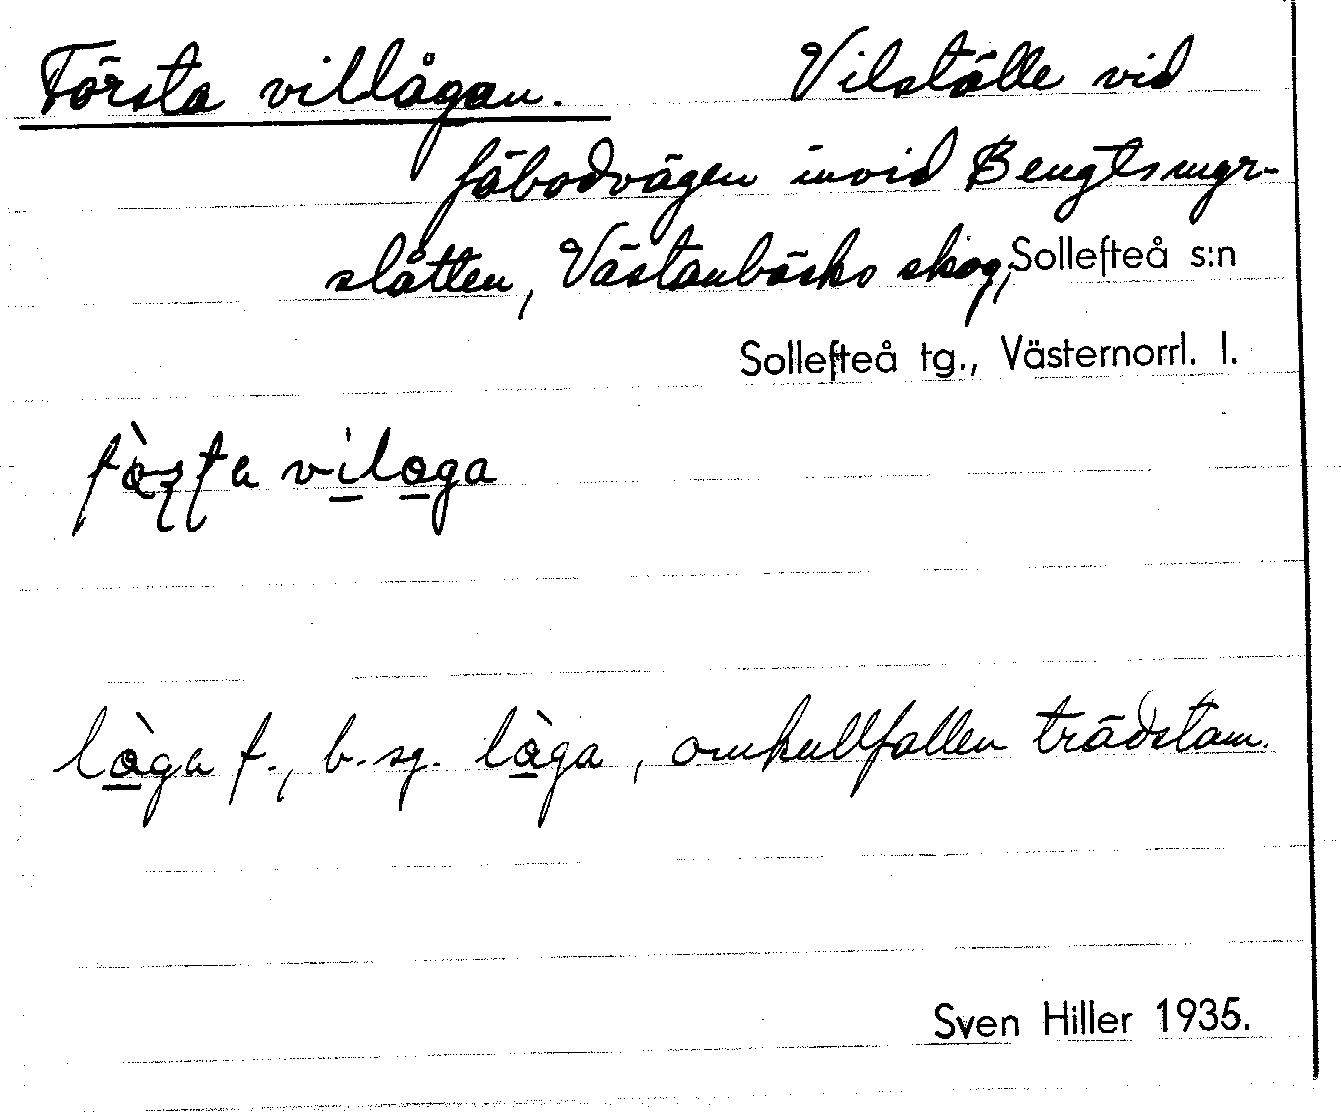 Första villågan. Vilställe vid
fäbodvägen invid Bengtsmyr-
slåtten, Västanbäcks skog, Sollefteå s:n
Sollefteå tg., Västernorrl. l.
vilɷga
lɷ̀ga f., b. sg. lɷ̀ga, omkullfallen trädstam.
Sven Hiller 1935.